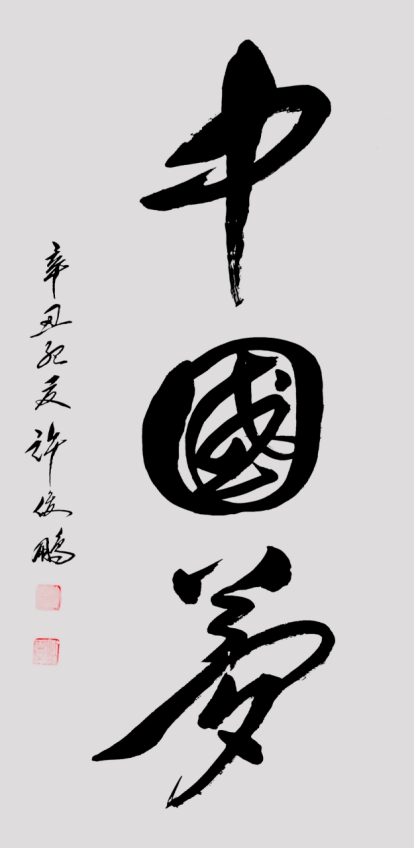 中國夢
辛丑初夏許俊鵬